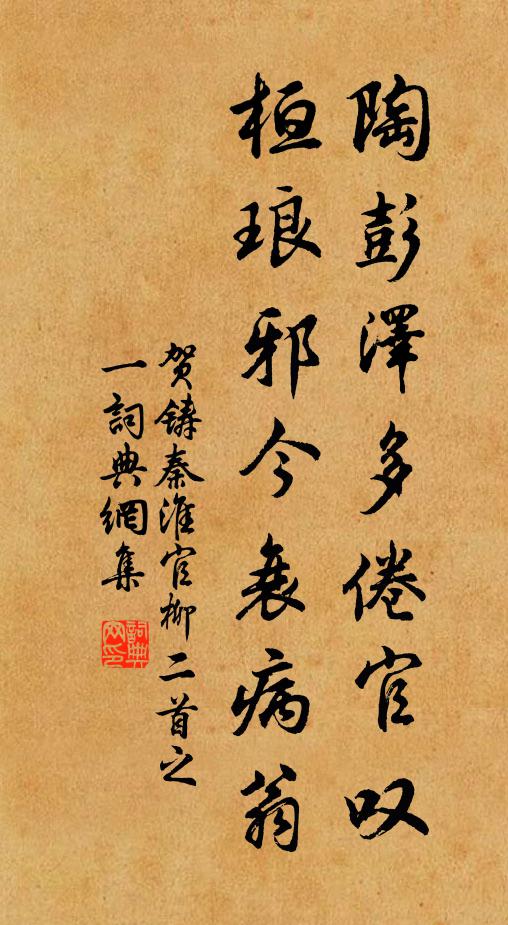 陶彭澤多倦官叹
桓琅邪今衰病翁
贺鑄秦淮官柳二首之
一詞典網集
詞典
網印